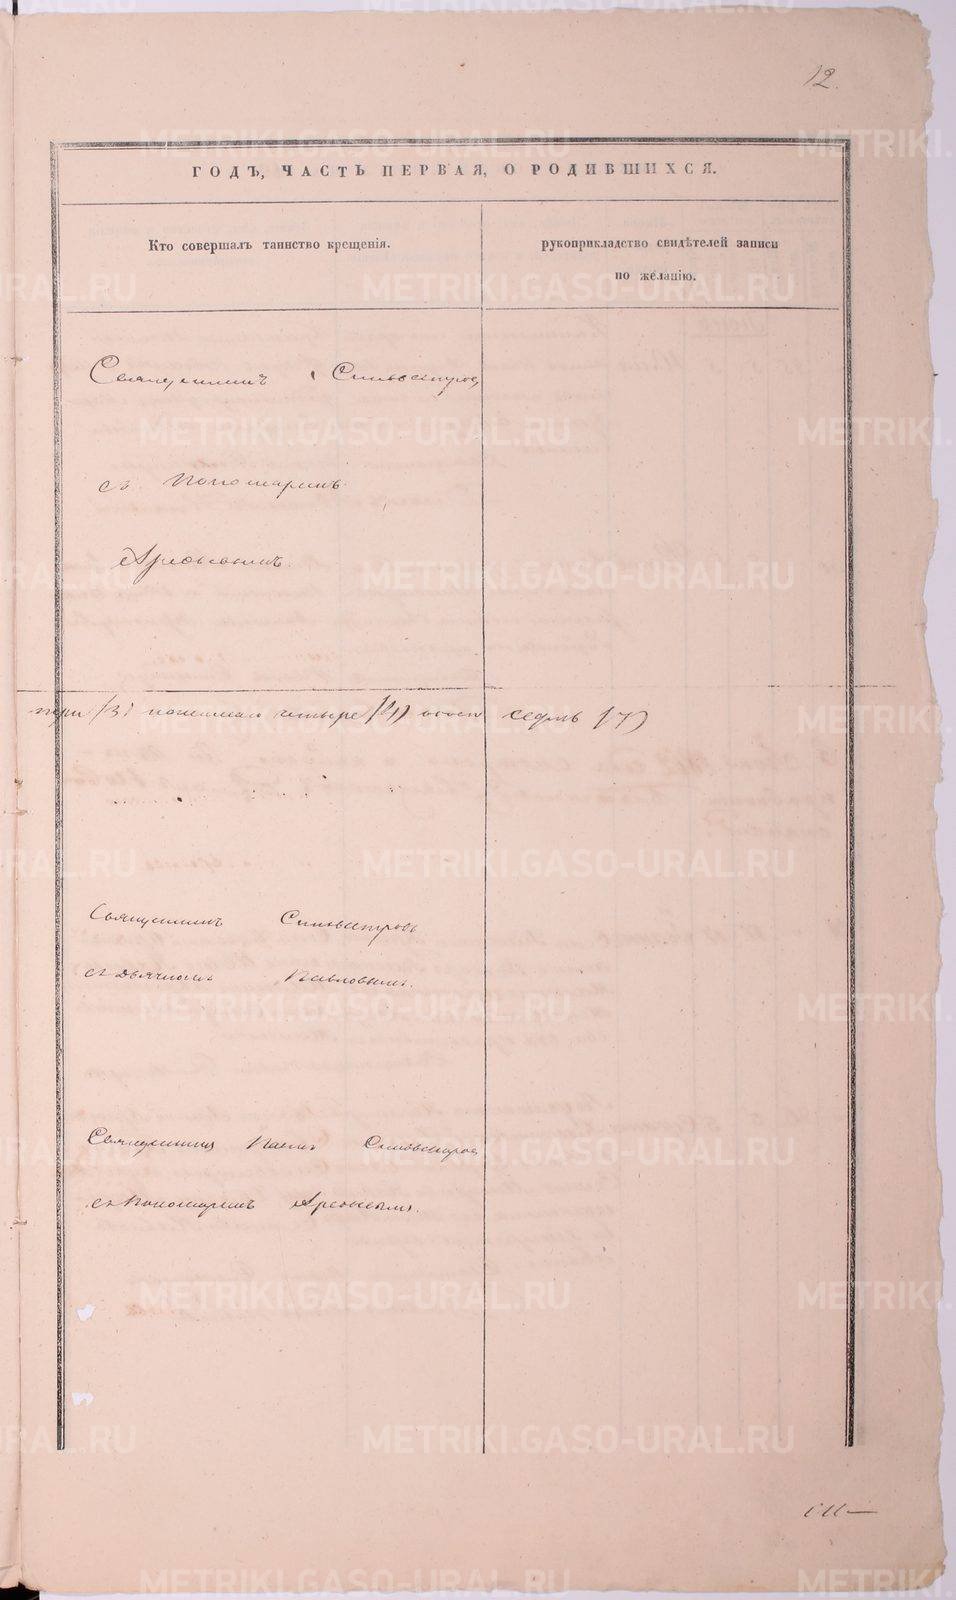 12.
ГОДЪ, ЧАСТЬ ПЕРВАЯ, О РОДИВШИХСЯ.
Кто совершалъ таинство крещенія.
рукоприкладство свидѣтелей записи
по желанію.
Священникъ Сильвестров
съ Пономаремъ
Арефьевымъ.
три (3) женскаго четыре (4) обоего седмь (7)
Священникъ Сильвестровъ
съ Дьячкомъ Павловымъ.
Священникъ Сильвестров
съ Пономаремъ Арефьевымъ.
METRIKI.GASO-URAL.RU